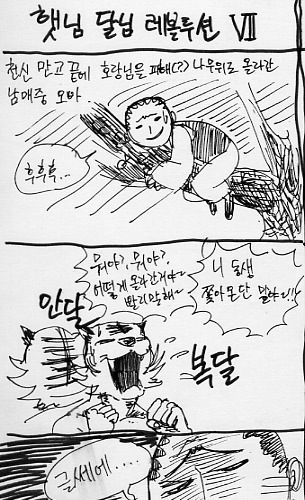 햇님 달님 레볼루션 Ⅶ
천신 만고 끝에 호랑님을 피해(?) 나무위로 올라간
남매중 오빠
후후후...
뭐야?, 뭐야?,
어떻게 올라간거야~
빨리말해~
니 동생
쫓아온단 말야~!!
안달
복달
글쎄에....